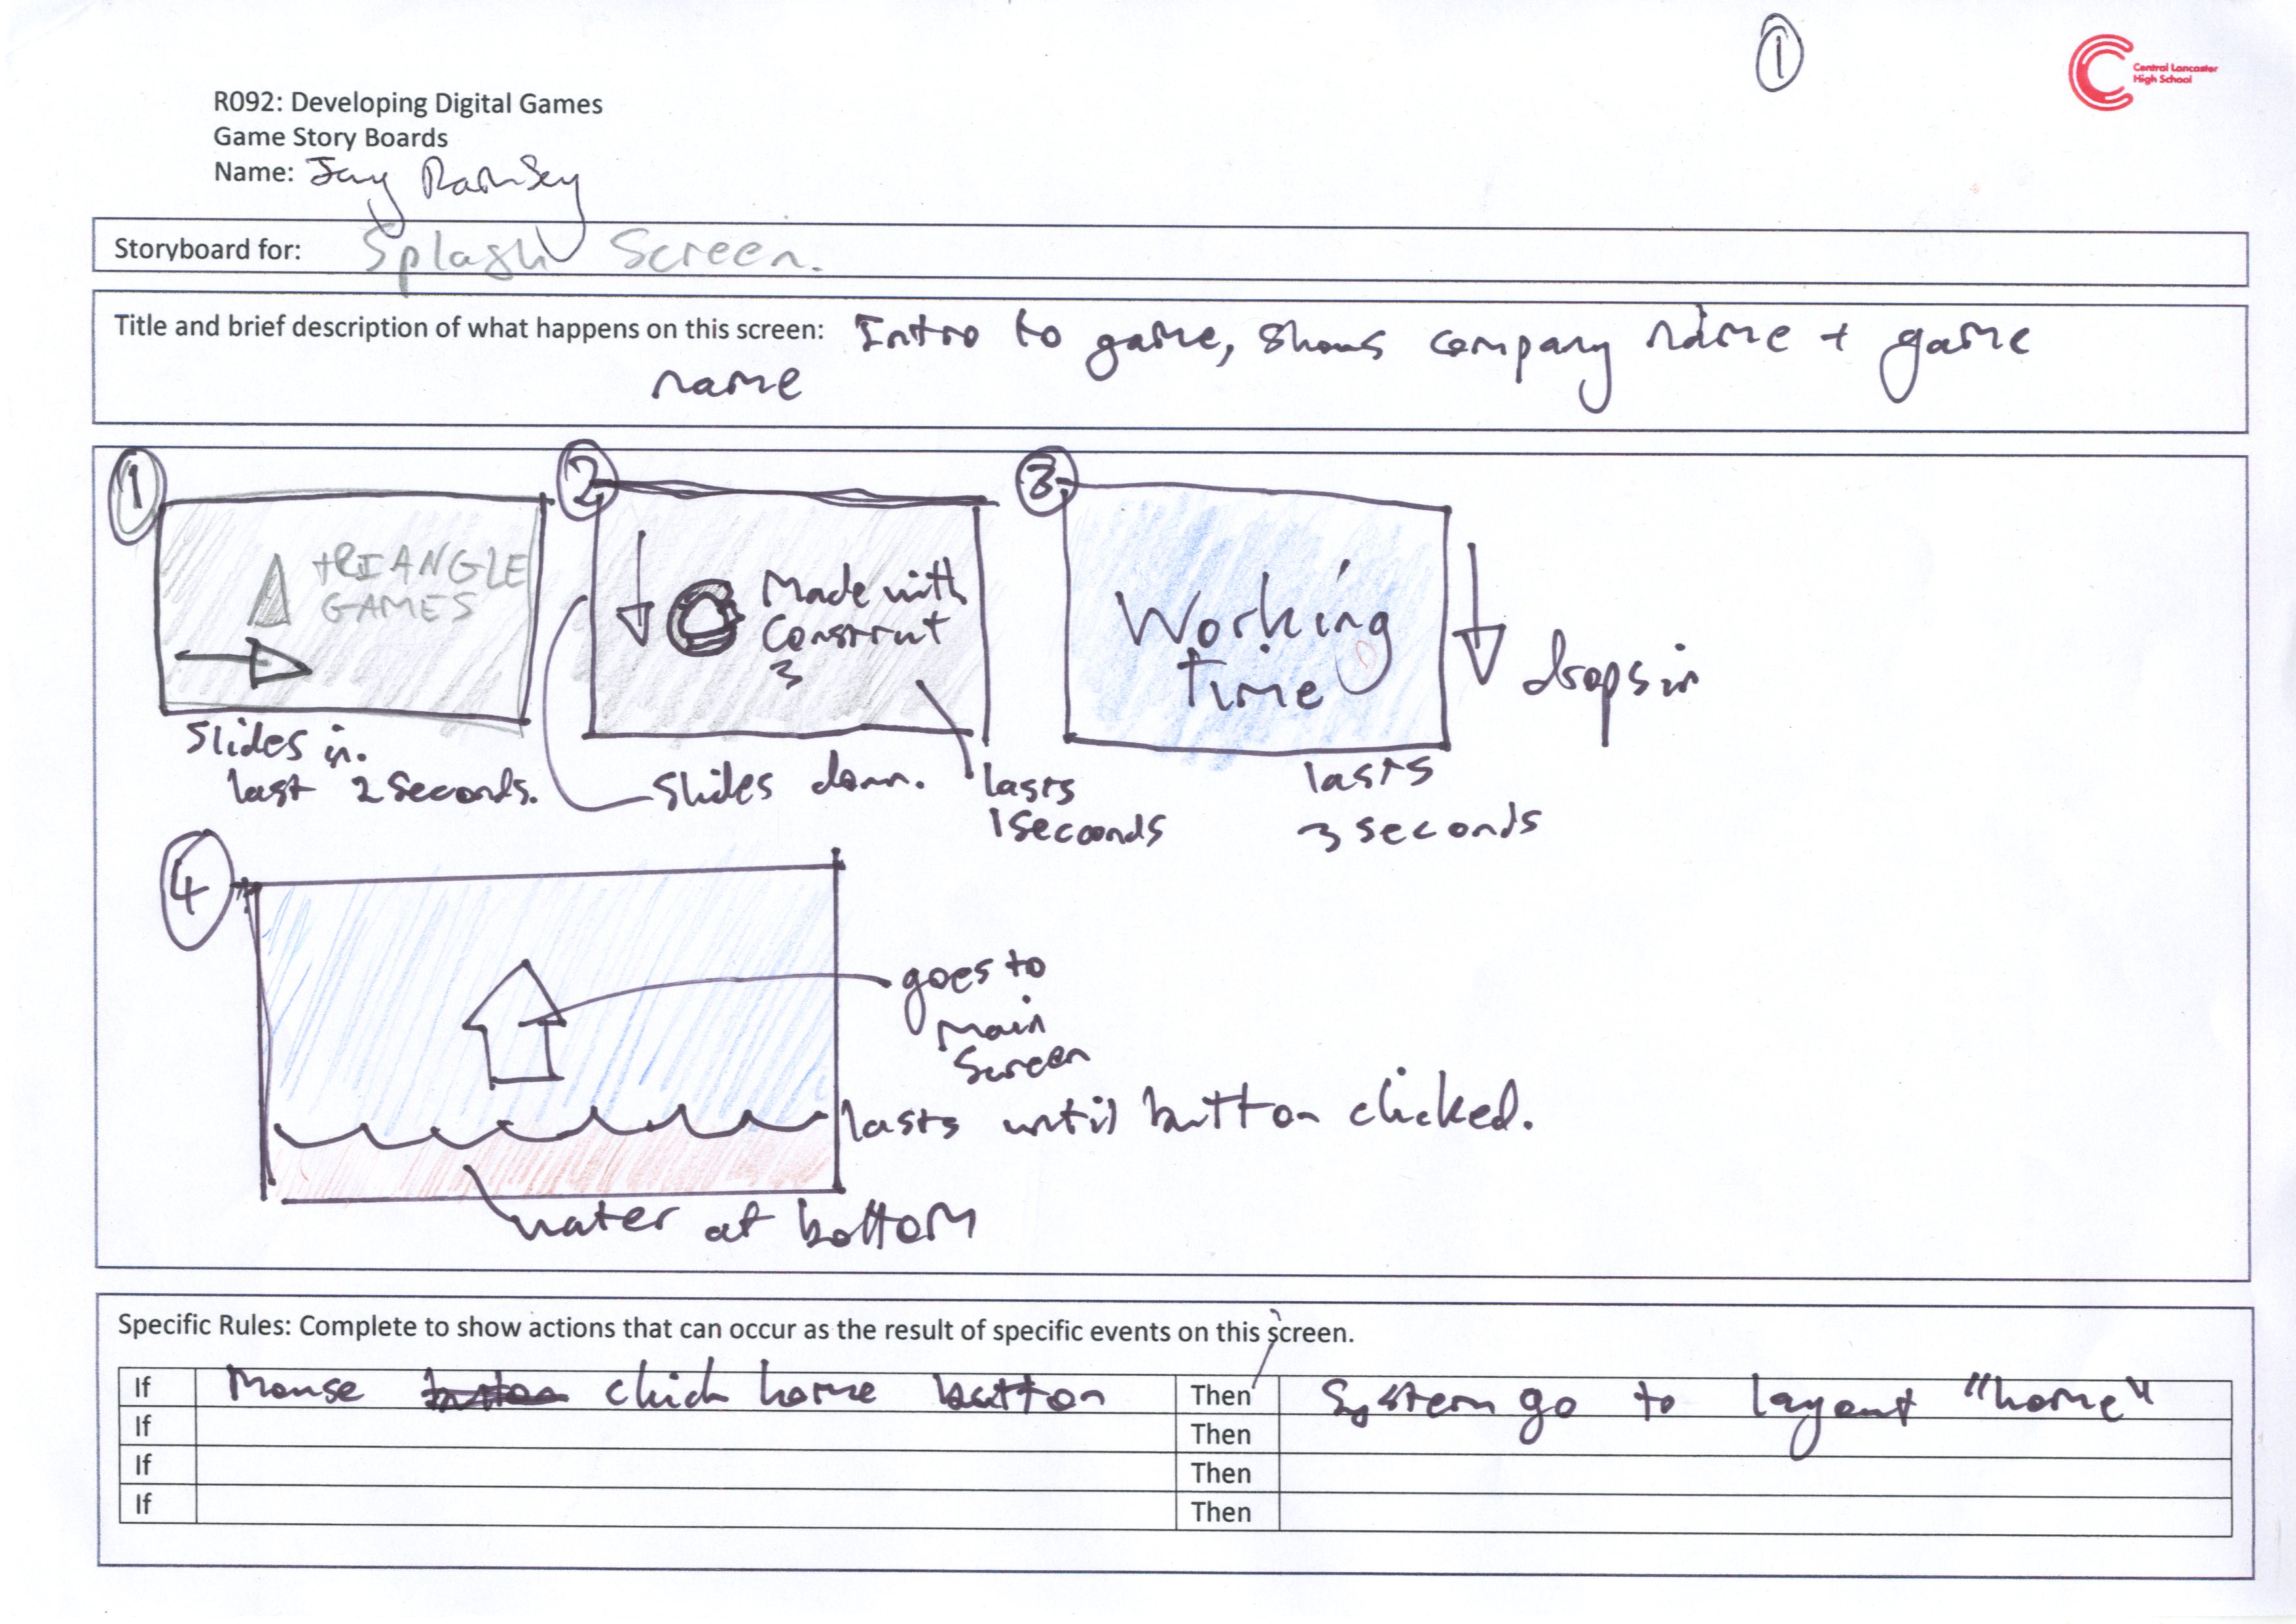 ①
Central Lancaster
High School
R092: Developing Digital Games
Game Story Boards
Name: Jay Ramsey
Storyboard for: Splash Screen.
Title and brief description of what happens on this screen: Intro to game, shows company name + game
name
① ② ③
tRIANGLE
GAMES
Made with
Construct
3
Working
time
drops in
Slides in.
last 2 seconds.
Slides down.
lasts
1 seconds
lasts
3 seconds
④
goes to
main
screen
lasts until button clicked.
water at bottom
Specific Rules: Complete to show actions that can occur as the result of specific events on this screen.
If Mouse click home button Then System go to layout "home"
If Then
If Then
If Then